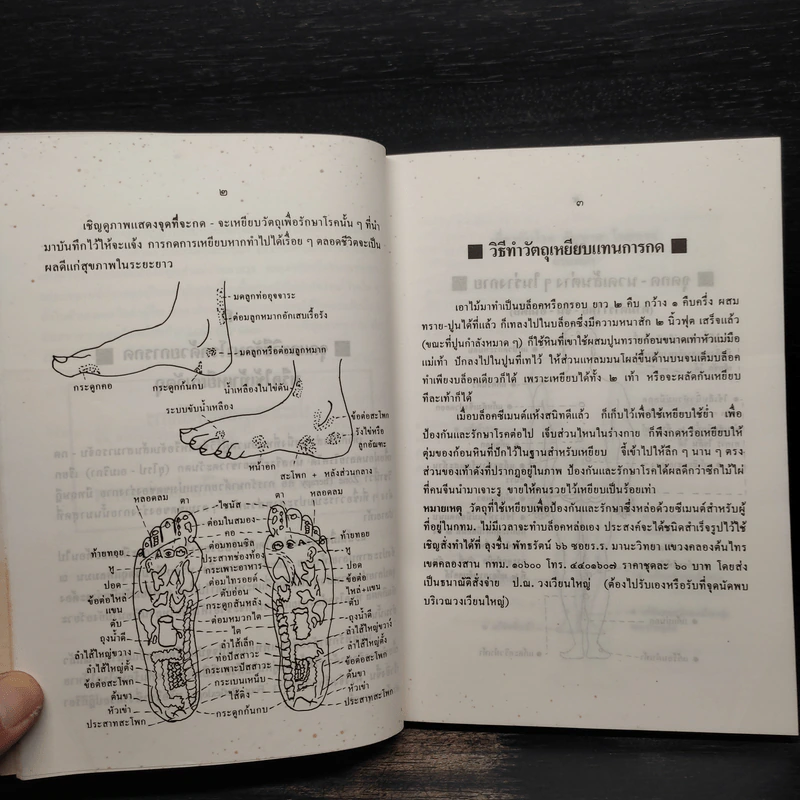 ๒
เชิญดูภาพแสดงจุดที่จะกด - จะเหยียบวัตถุเพื่อรักษาโรคนั้น ๆ ที่นำ
มาบันทึกไว้ให้จะแจ้ง การกดการเหยียบหากทำไปได้เรื่อย ๆ ตลอดชีวิตจะเป็น
ผลดีแก่สุขภาพในระยะยาว
มดลูกท่ออุจจาระ
ต่อมลูกหมากอักเสบเรื้อรัง
มดลูกหรือต่อมลูกหมาก
กระดูกคอ
กระดูกก้นกบ
น้ำเหลืองในไข่ดัน
ระบบขับน้ำเหลือง
ข้อต่อสะโพก
รังไข่หรือ
ลูกอัณฑะ
หน้าอก
สะโพก + หลังส่วนกลาง
หลอดลม
ตา
ไซนัส
ตา
หลอดลม
ต่อมในสมอง
คอ
ต่อมทอนซิล
ประสาทช่องท้อง
กระเพาะอาหาร
ต่อมไทรอยด์
ตับอ่อน
กระดูกสันหลัง
ต่อมหมวกไต
ไต
ลำไส้เล็ก
ท่อปัสสาวะ
กระเพาะปัสสาวะ
กระเบนเหน็บ
ไส้ติ่ง
กระดูกก้นกบ
ท้ายทอย
หู
ปอด
ข้อต่อไหล่
แขน
ตับ
ถุงน้ำดี
ลำไส้ใหญ่ขวาง
ลำไส้ใหญ่ตั้ง
ข้อต่อสะโพก
ต้นขา
หัวเข่า
ประสาทสะโพก
ท้ายทอย
หู
ปอด
ข้อต่อ
ไหล่+แขน
ตับ
ถุงน้ำดี
ลำไส้ใหญ่ขวาง
ลำไส้ใหญ่ตั้ง
ข้อต่อสะโพก
ต้นขา
หัวเข่า
ประสาทสะโพก
๓
วิธีทำวัตถุเหยียบแทนการกด
เอาไม้มาทำเป็นบล็อคหรือกรอบ ยาว ๒ คืบ กว้าง ๑ คืบครึ่ง ผสม
ทราย-ปูนได้ที่แล้ว ก็เทลงไปในบล็อคซึ่งมีความหนาสัก ๒ นิ้วฟุต เสร็จแล้ว
(ขณะที่ปูนกำลังหมาด ๆ) ก็ใช้หินที่เขาใช้ผสมปูนทรายก้อนขนาดเท่าหัวแม่มือ
แม่เท้า ปักลงไปในปูนที่เทไว้ ให้ส่วนแหลมมนโผล่ขึ้นด้านบนจนเต็มบล็อค
ทำเพียงบล็อคเดียวก็ได้ เพราะเหยียบได้ทั้ง ๒ เท้า หรือจะผลัดกันเหยียบ
ทีละเท้าก็ได้
เมื่อบล็อคซีเมนต์แห้งสนิทดีแล้ว ก็เก็บไว้เพื่อใช้เหยียบใช้ย่ำ เพื่อ
ป้องกันและรักษาโรคต่อไป เจ็บส่วนไหนในร่างกาย ก็พึงกดหรือเหยียบให้
ตุ่มของก้อนหินที่ปักไว้ในฐานสำหรับเหยียบ จี้เข้าไปให้ลึก ๆ นาน ๆ ตรง
ส่วนของเท้าดังที่ปรากฏอยู่ในภาพ ป้องกันและรักษาโรคได้ผลดีกว่าซีกไม้ไผ่
ที่คนจีนนำมาเจาะรู ขายให้คนรวยไว้เหยียบเป็นร้อยเท่า
หมายเหตุ วัตถุที่ใช้เหยียบเพื่อป้องกันและรักษาซึ่งหล่อด้วยซีเมนต์สำหรับผู้
ที่อยู่ในกทม. ไม่มีเวลาจะทำบล็อคหล่อเอง ประสงค์จะได้ชนิดสำเร็จรูปไว้ใช้
เชิญสั่งทำได้ที่ ลุงชื่น พัทธรัตน์ ๖๖ ซอยร.ร. มานะวิทยา แขวงคลองต้นไทร
เขตคลองสาน กทม. ๑๐๖๐๐ โทร. ๔๔๐๑๖๐๗ ราคาชุดละ ๖๐ บาท โดยส่ง
เป็นธนาณัติสั่งจ่าย ป.ณ. วงเวียนใหญ่ (ต้องไปรับเองหรือรับที่จุดนัดพบ
บริเวณวงเวียนใหญ่)